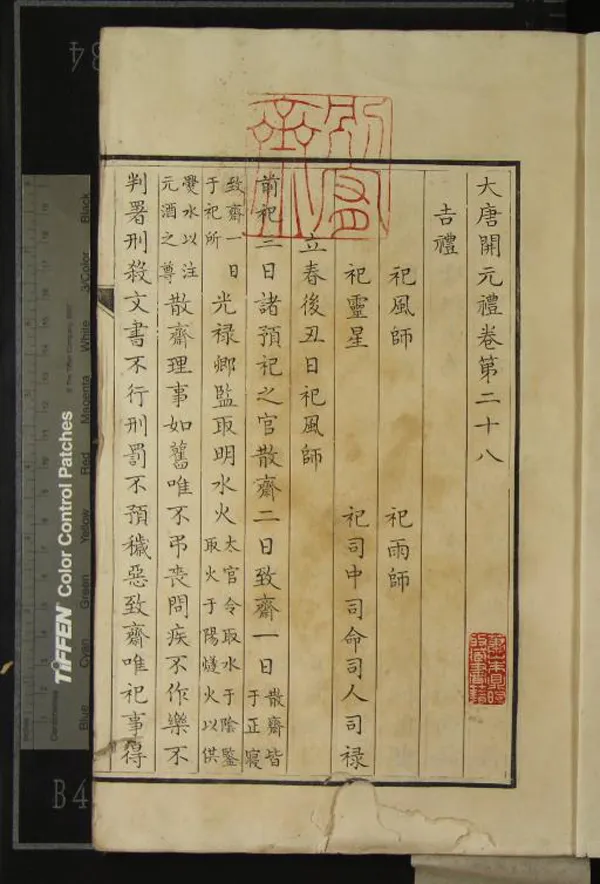 大唐開元禮卷第二十八
吉禮
祀風師 祀雨師
祀靈星 祀司中司命司人司禄
立春後丑日祀風師
前祀三日諸預祀之官散齋二日致齋一日散齋皆于正寢
致齋一日于祀所光禄卿監取明水火太官令取水于陰鑑取火于陽燧火以供
爨水以注元酒之尊散齋理事如舊唯不弔喪問疾不作樂不
判署刑殺文書不行刑罰不預穢惡致齋唯祀事得
TIFFEN Color Control Patches
Blue Cyan Green Yellow Red Magenta White 3/Color Black
B4